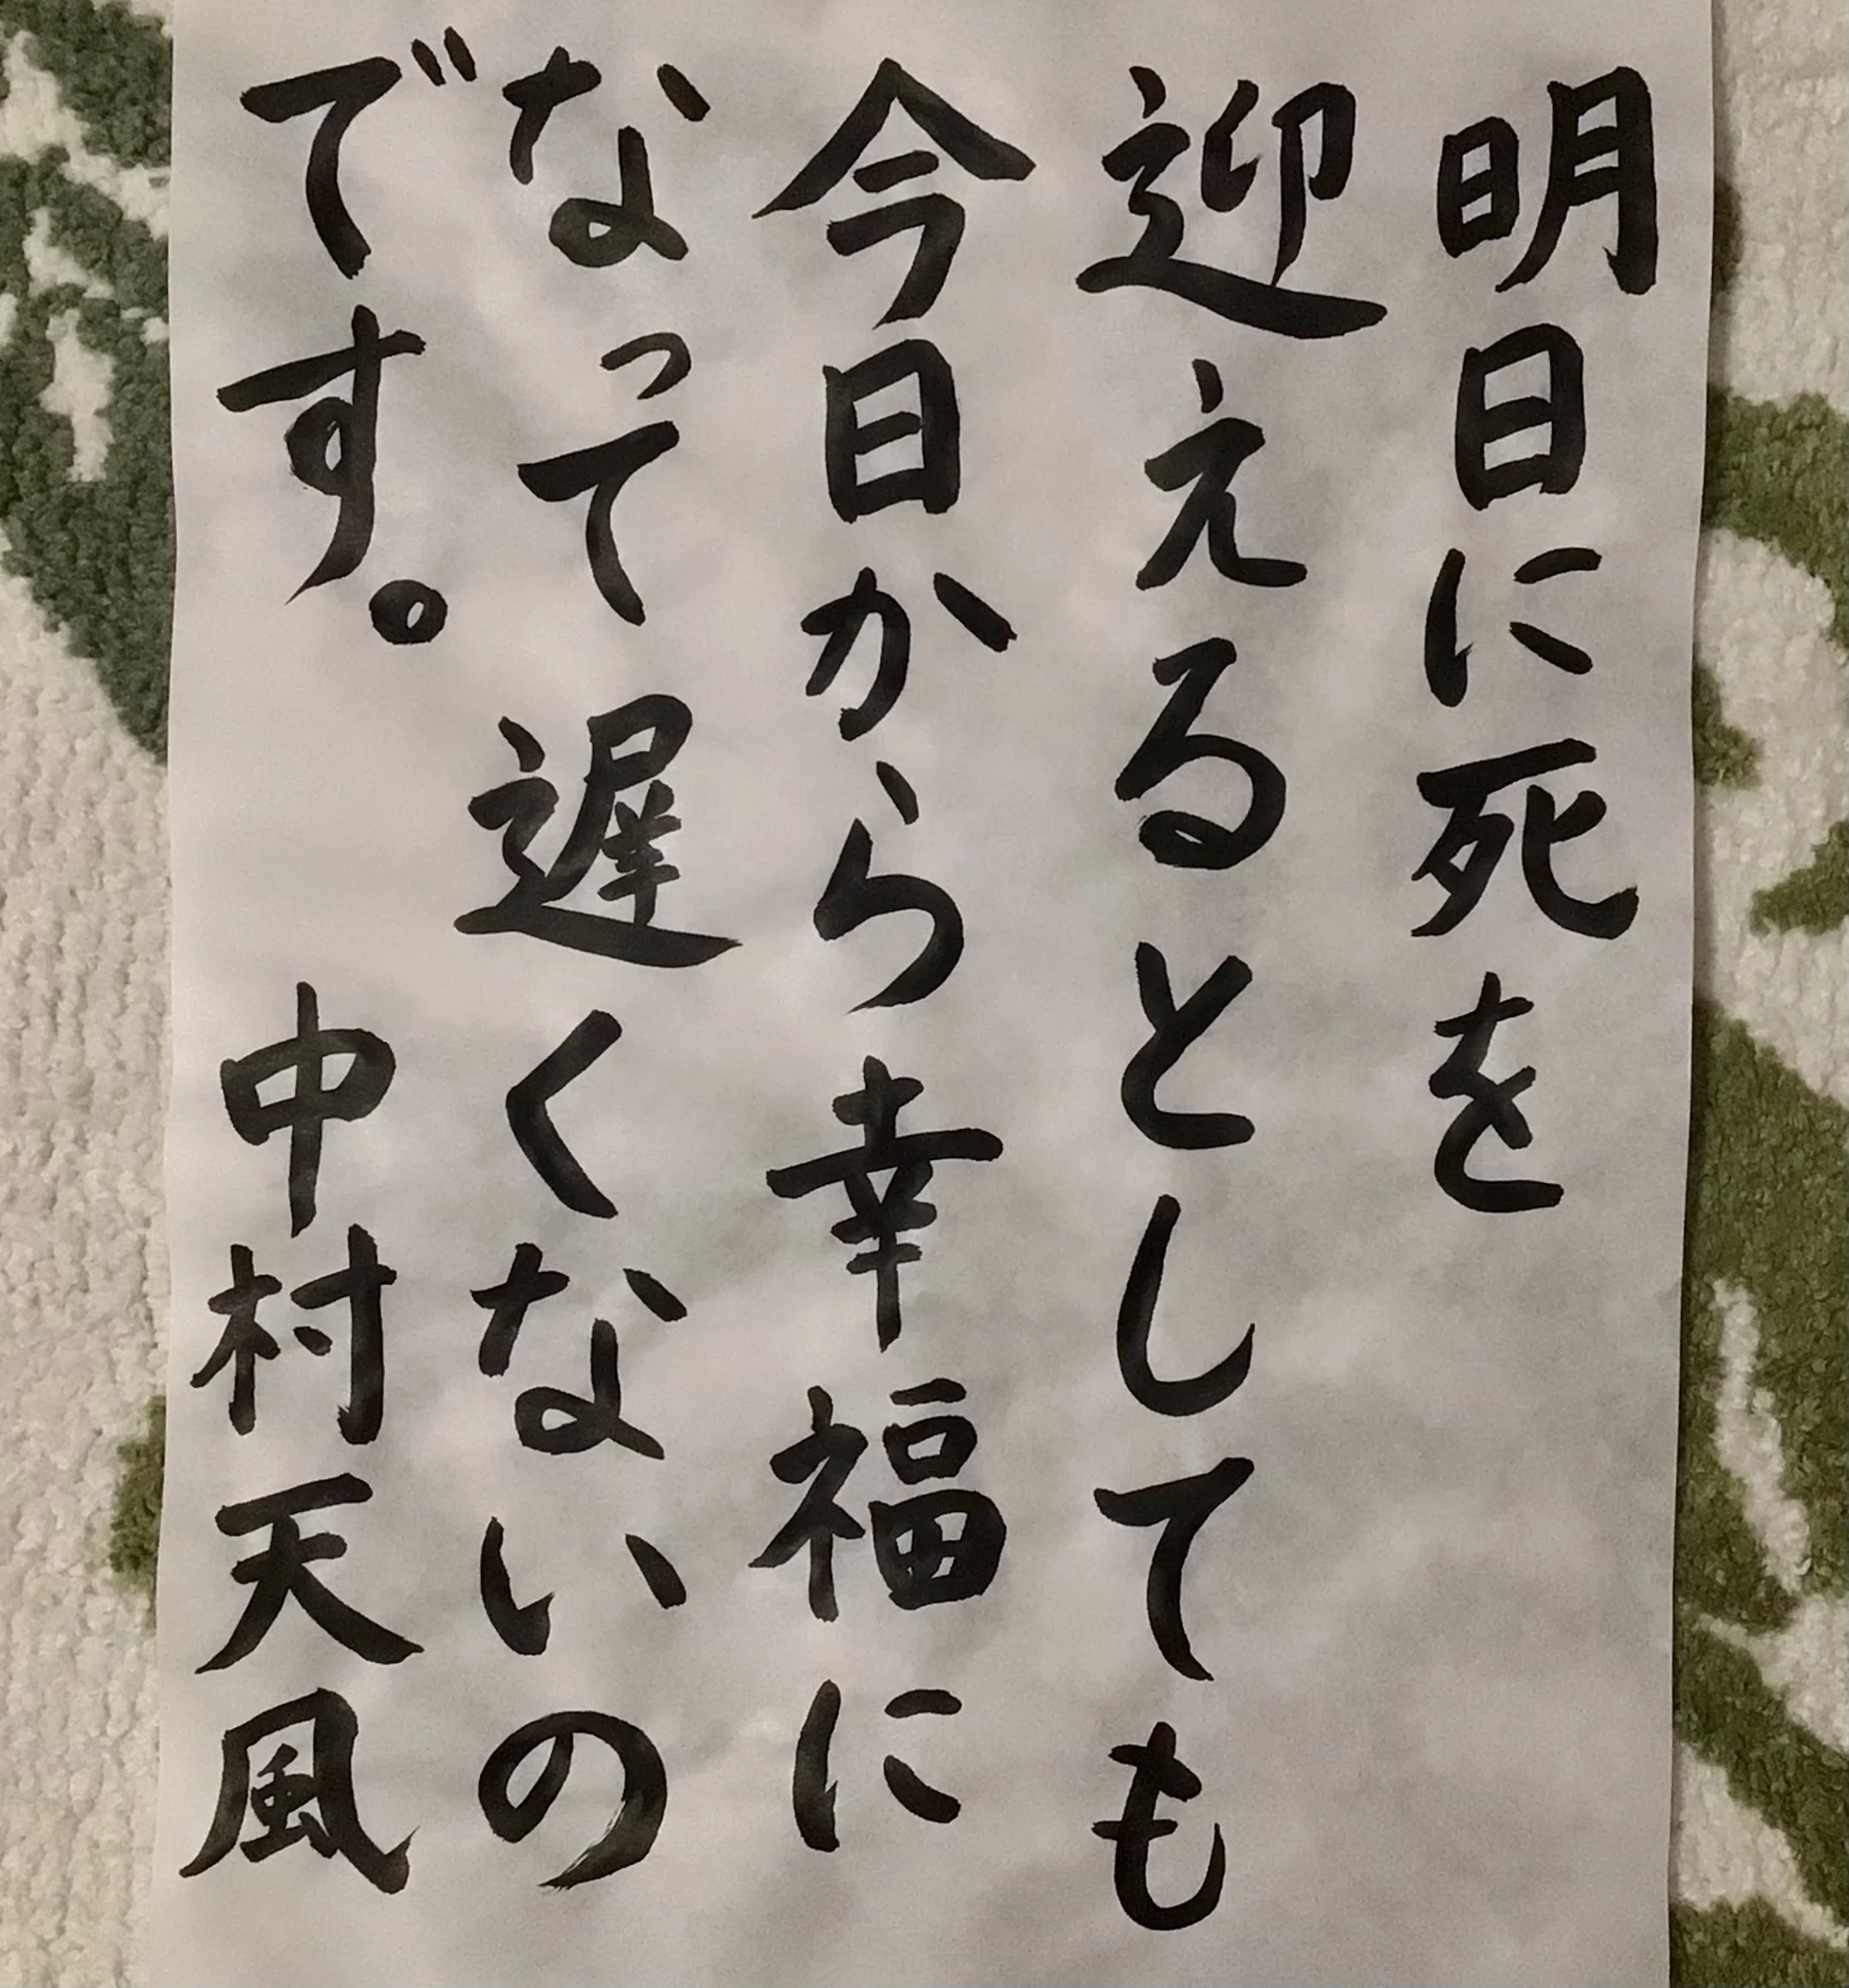 明日に死を
迎えるとしても
今日から幸福に
なって遅くないの
です。 中村天風